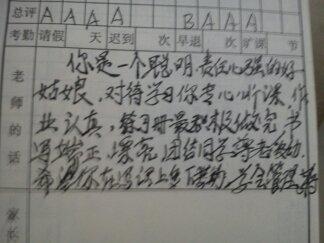 总评 A A A A B A A A
考勤 请假 天 迟到 次 早退 次 旷课 节
老师的话
你是一个聪明,责任心强的好
姑娘,对待学习你专心听课,作
业认真,练习册最积极做完,书
写端正,漂亮,团结同学尊老爱幼,
希望你在写话上多下功夫,学会管理
家长